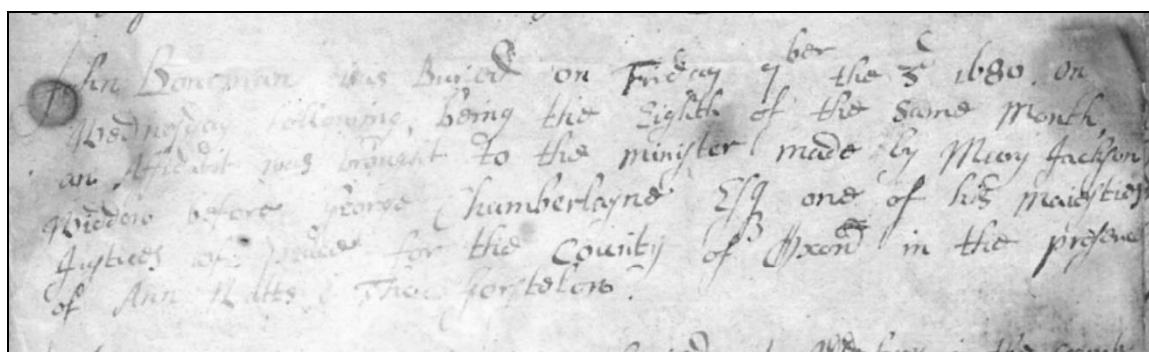 John Bowman was Buried on Friday 7ber the 3d 1680. On
Wednesday following, being the Eighth of the same Month,
an Affidavit was brought to the minister made by Mary Jackson
Widdow before George Chamberlayne Esq one of his Maiesties
Justices of Peace for the County of Oxon in the presence
of Ann Thos